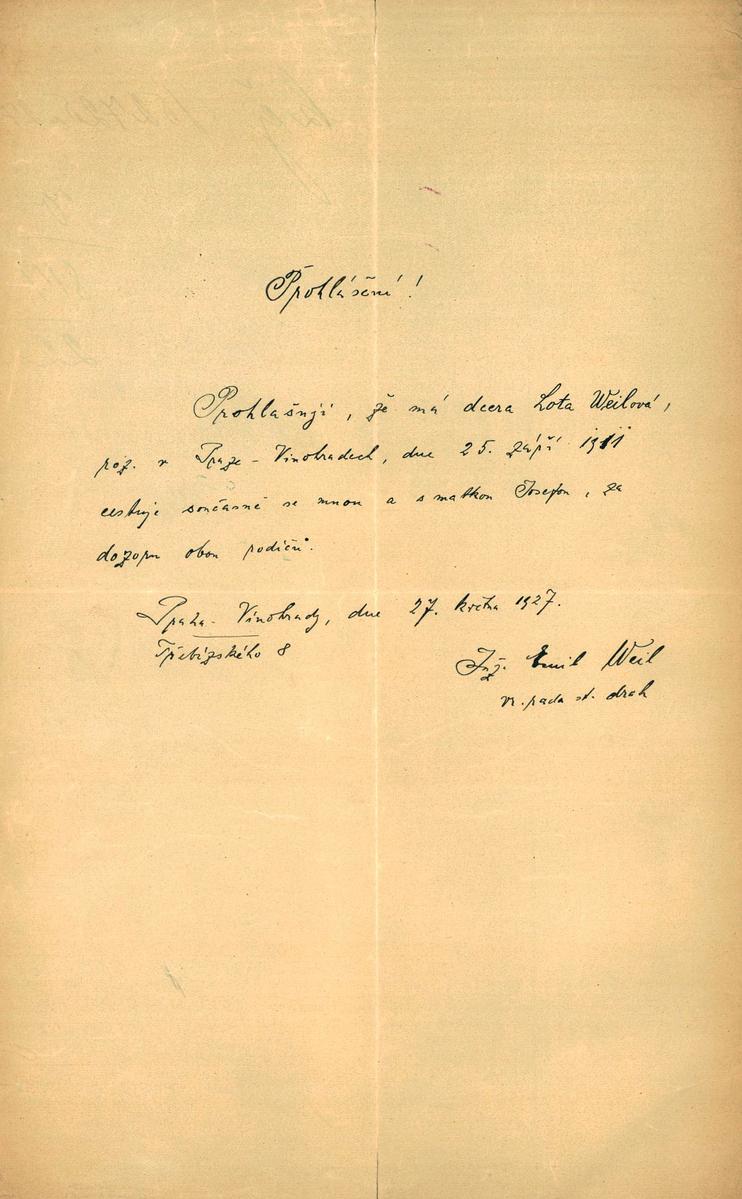 Prohlášení!
Prohlašuji, že má dcera Lota Weilová,
roz. v Praze-Vinohradech, dne 25. září 1911
cestuje současně se mnou a s matkou Josefou, za
dozoru obou rodičů.
Praha-Vinohrady, dne 27. května 1927.
Třebízského 8
Ing. Emil Weil
vr. rada st. drah